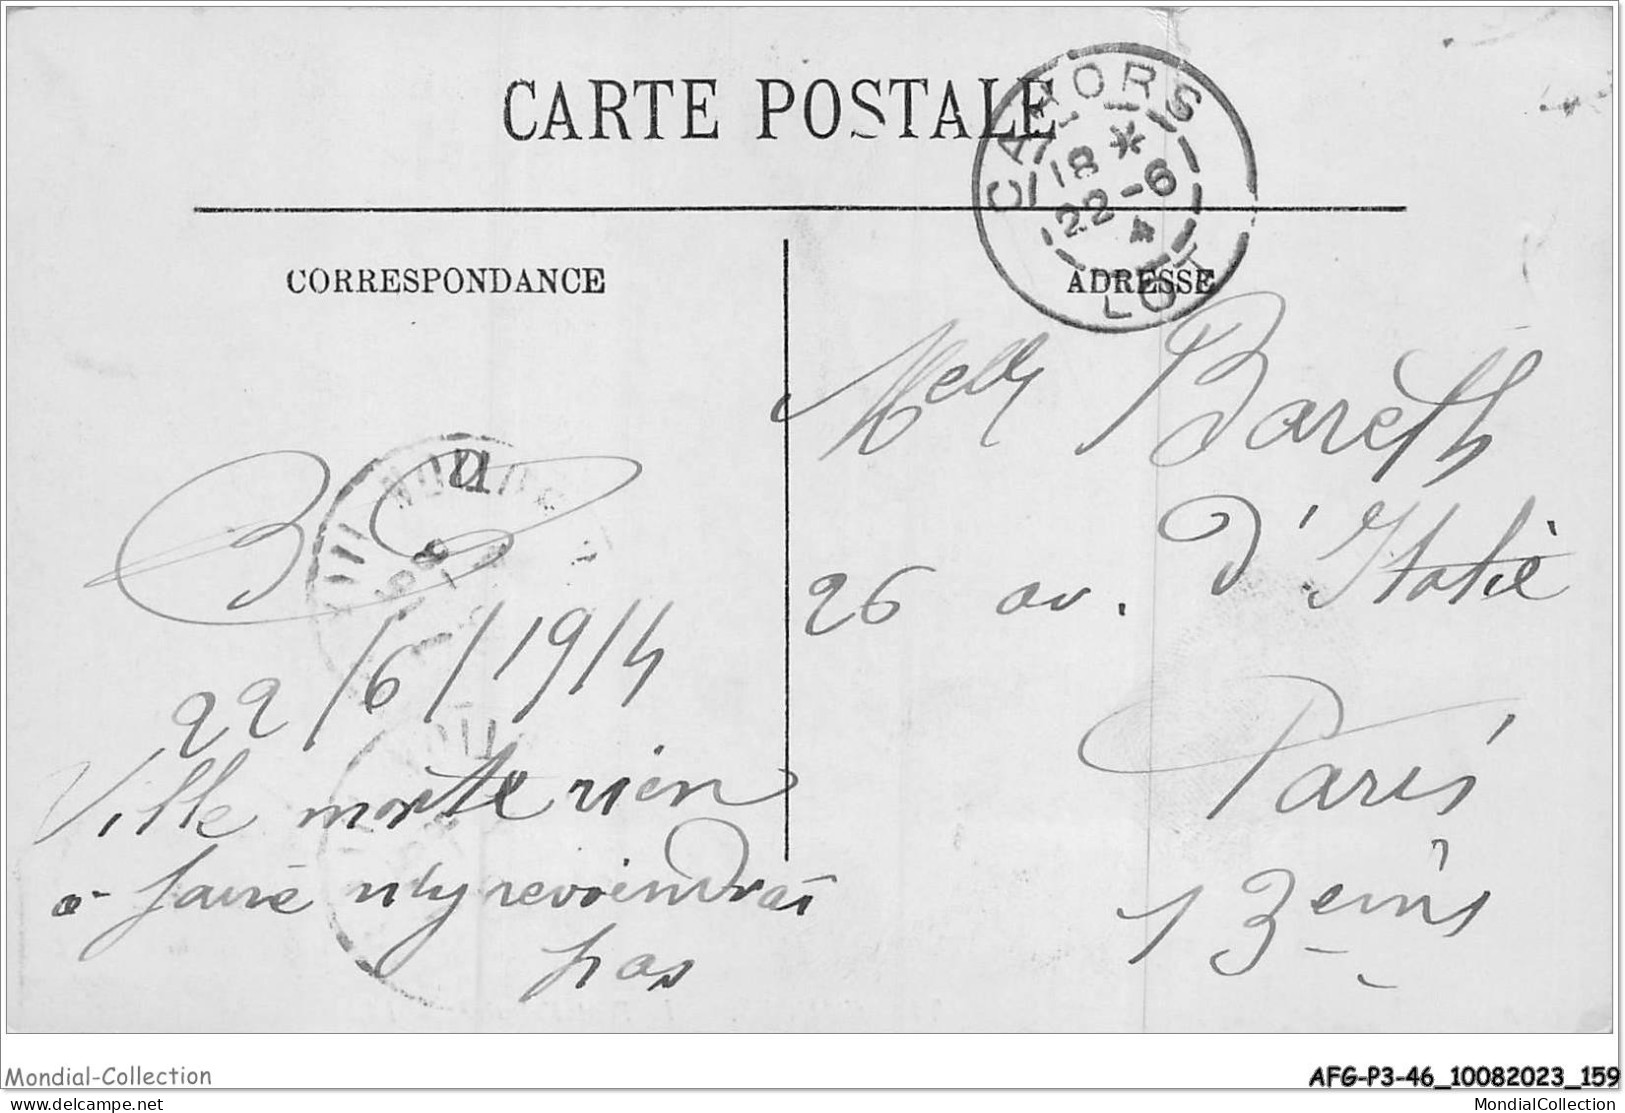 CARTE POSTALE
CAHORS
18 *
22-6
4
LOT
CORRESPONDANCE
ADRESSE
Melly Bareth
26 av. d'Italie
Paris
13 eme
22/6/1914
Ville morte rien
a faire n'y revoiendrai
pas
Mondial-Collection
AFG-P3-46_10082023_159
www.delcampe.net
MondialCollection